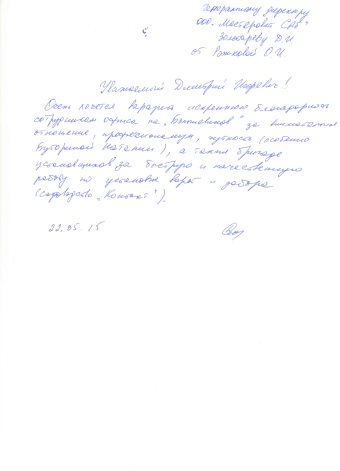 Генеральному директору
ООО "Мастеровет СПб"
Золотареву Д.И
от Рожковой О.И.
Уважаемый Дмитрий Игоревич!
Очень хочется выразить искреннюю благодарность
сотрудникам офиса на "Большевиков" за внимательное
отношение, профессионализм, чуткость (особенно
Буториной Наталии), а также бригаде
установщиков за быструю и качественную
работу по установке ворот и забора
(садоводство "Контакт").
22.05.15